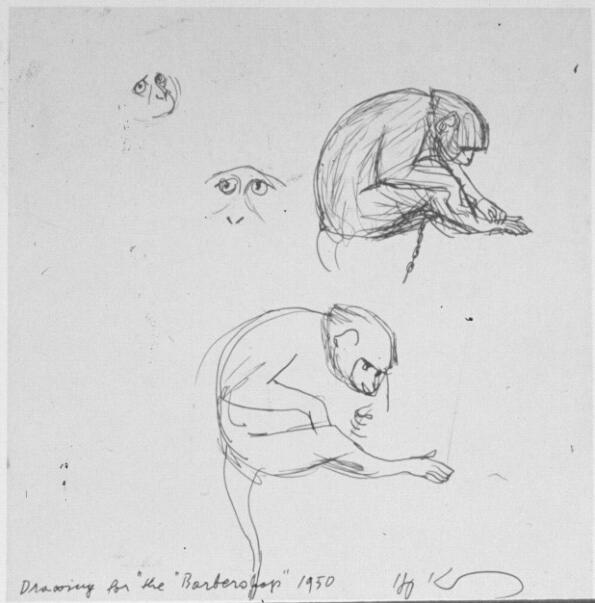 Drawing for "the "Barbershop" 1950